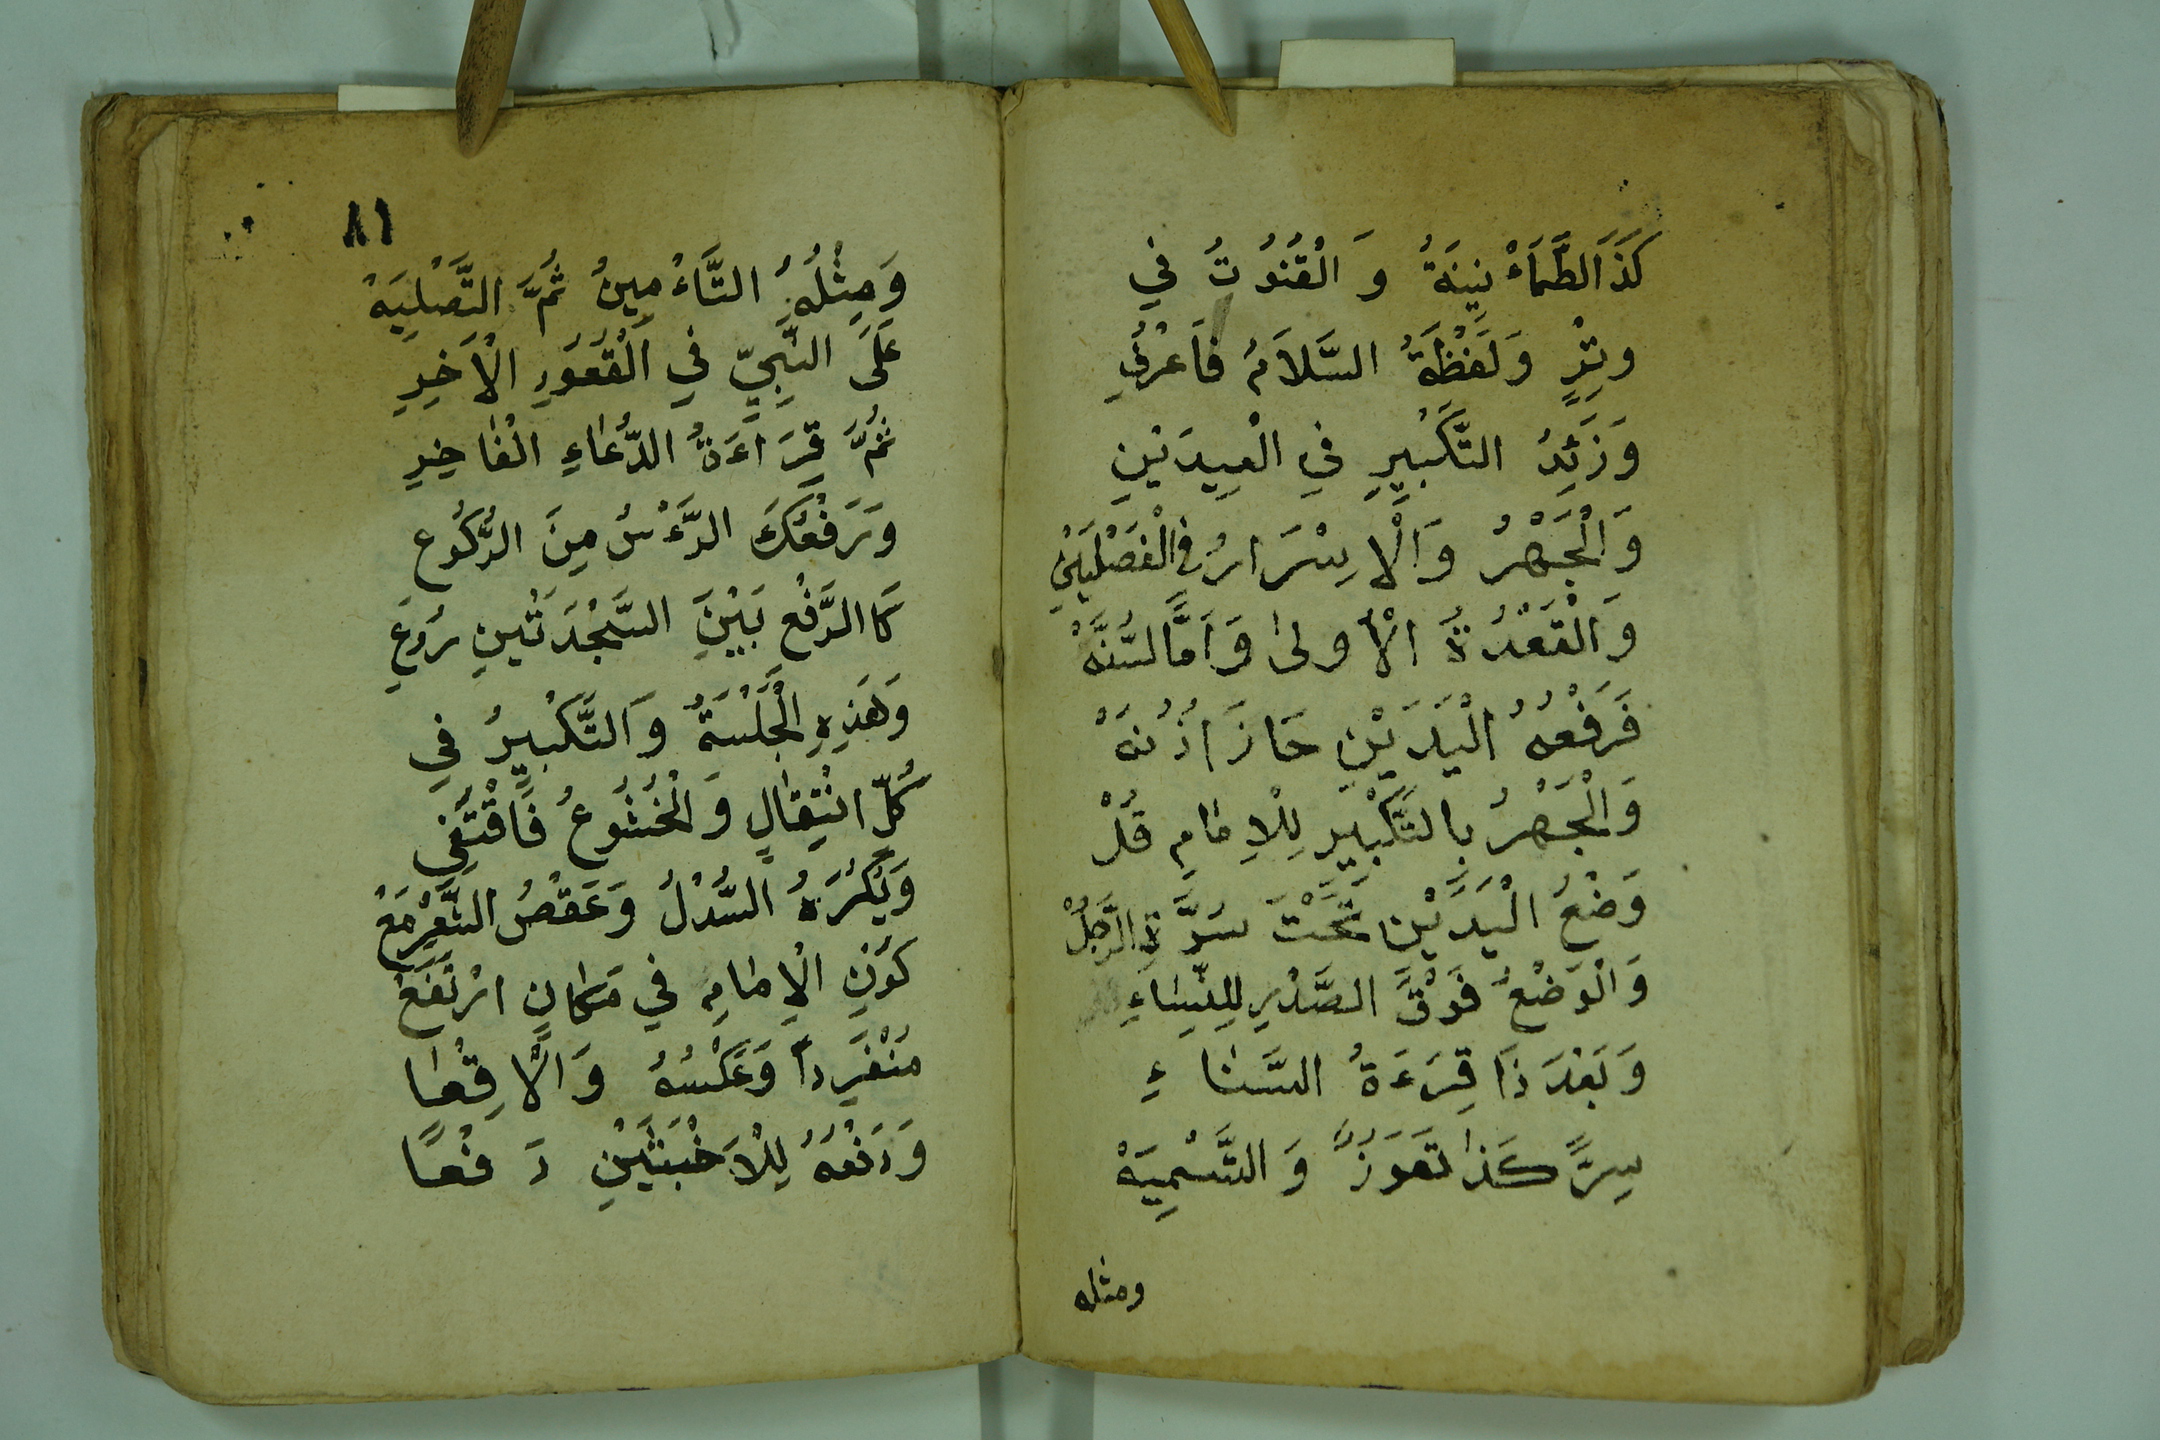 كَذَا الطَّمَاءْنِينَةُ وَ الْقُنُوتُ فِي
وِتْرٍ وَلَفْظَةُ السَّلَامُ فَاعْرُفِي
وَزَئِدُ التَّكْبِيرِ فِي الْعِيدَيْنِ
وَالْجَهْرُ وَالْاِسْرَارُ فِي الْفَصْلَيْنِ
وَالْقَعْدَةُ الْأُولىٰ وَاَمَّا السُّنَّةْ
فَرَفْعُهُ الْيَدَيْنِ حَازَ اذُنَهْ
وَالْجَهْرُ بِالتَّكْبِيرِ لِلْاِمَامِ قُلْ
وَضْعُ الْيَدَيْنِ تَحْتَ سُرَّةِ الرَّجُلْ
وَالْوَضْعُ فَوْقَ الصَّدْرِ لِلنِّسَاءِ
وَبَعْدَ ذَا قِرَءَةُ السَّنَاءِ
سِرًّا كَذَا تَعَوَزُ وَ التَّسْمِيَهْ
ومثله
٨١
وَمِثْلُهُ التَّاءْمِينُ ثُمَّ التَّصْلِيَهْ
عَلَى النَّبِيِّ فِي الْقُعُودِ الْاَخِرِ
ثُمَّ قِرَاءَةُ الدُّعَاءِ الْفَاخِرِ
وَرَفْعُكَ الرَّءْسُ مِنَ الرُّكُوع
كَا الرَّفْعِ بَيْنَ السَّجْدَتْينِ رُوعِ
وَهَذِهِ الْجَلْسَةُ وَالتَّكْبِيرُ فِي
كُلِّ انْتِقَالٍ وَالْخُشُوعُ فَاقْتَفِي
وَيُكْرَهُ السَّدْلُ وَعَقْصُ الشَّعْرِ مَعْ
كَوْنِ الْاِمَامِ فِي مَكَانٍ ارْتَفَعْ
مُنْفَرِداً وَعَكْسُهُ وَالْاِقْعَا
وَدَفْعُهُ لِلْاَخْبَثَيْنِ دَفْعًا